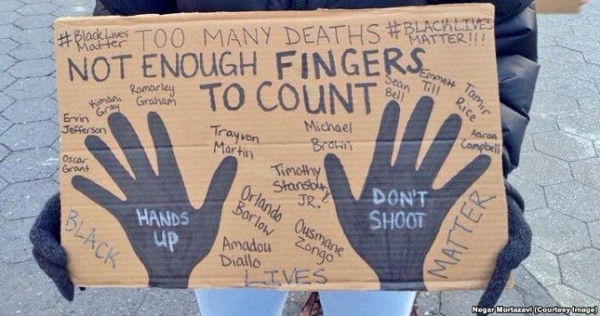 #BlackLives Matter
TOO MANY DEATHS
#BLACKLIVES MATTER!!!
NOT ENOUGH FINGERS
TO COUNT
Oscar Grant
Ervin Jefferson
Kimani Gray
Ramarley Graham
Trayvon Martin
Michael Brown
Sean Bell
Emmett Till
Tamir Rice
Aaron Campbell
Timothy Stansbury JR.
Orlando Barlow
Ousmane Zongo
Amadou Diallo
HANDS UP
DON'T SHOOT
BLACK
LIVES
MATTER
Negar Mortazavi (Courtesy Image)